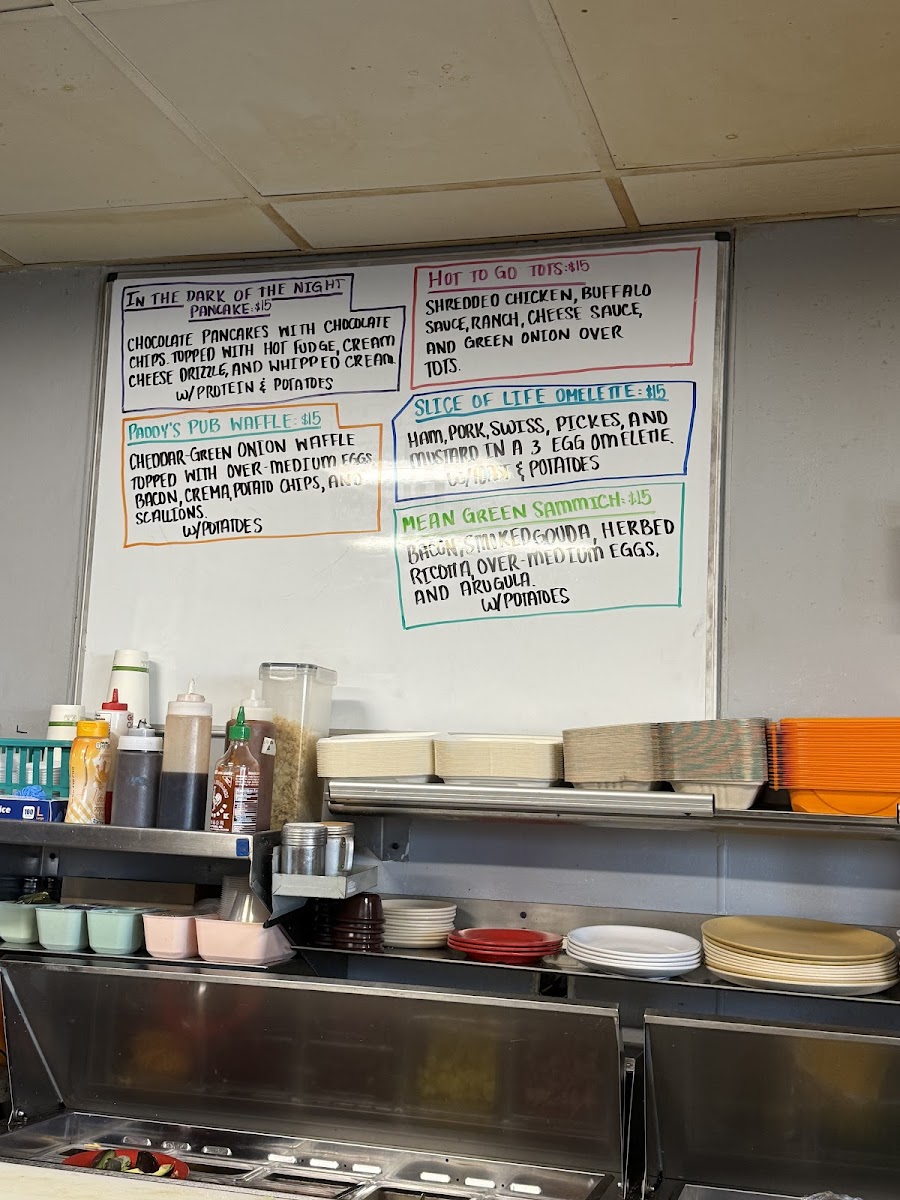 IN THE DARK OF THE NIGHT
PANCAKE: $15
CHOCOLATE PANCAKES WITH CHOCOLATE
CHIPS. TOPPED WITH HOT FUDGE, CREAM
CHEESE DRIZZLE, AND WHIPPED CREAM.
W/PROTEIN & POTATOES
PADDY'S PUB WAFFLE: $15
CHEDDAR-GREEN ONION WAFFLE
TOPPED WITH OVER-MEDIUM EGGS
BACON, CREMA, POTATO CHIPS, AND
SCALLIONS.
W/POTATOES
HOT TO GO TOTS: $15
SHREDDED CHICKEN, BUFFALO
SAUCE, RANCH, CHEESE SAUCE,
AND GREEN ONION OVER
TOTS.
SLICE OF LIFE OMELETTE: $15
HAM, PORK, SWISS, PICKES, AND
MUSTARD IN A 3 EGG OMELETTE.
W/TOAST & POTATOES
MEAN GREEN SAMMICH: $15
BACON, SMOKED GOUDA, HERBED
RICOTTA, OVER-MEDIUM EGGS,
AND ARUGULA.
W/POTATOES